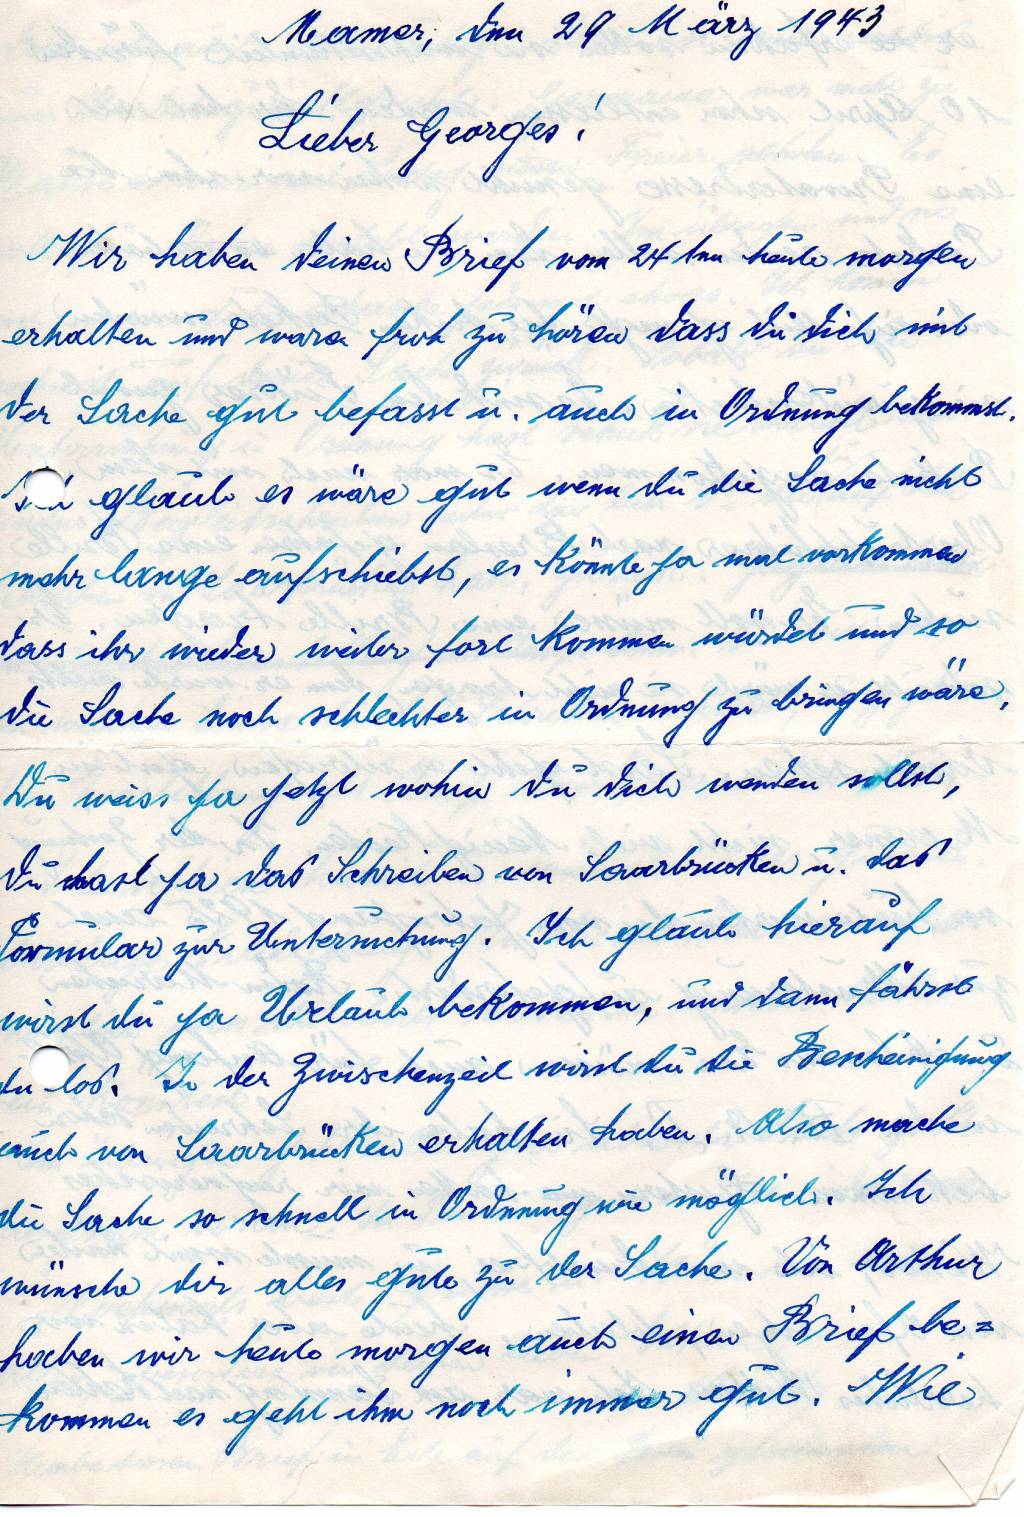 Mamer, den 29 März 1943
Lieber Georges!
Wir haben deinen Brief vom 24ten heute morgen
erhalten und waren froh zu hören dass du dich mit
der Sache gut befasst u. auch in Ordnung bekommst.
glaube es wäre gut wenn du die Sache nicht
mehr lange aufschiebst, es könnte ja mal vorkommen
dass ihr wieder weiter fort kommen würdet und so
die Sache noch schlechter in Ordnung zu bringen wäre.
Du weiss ja jetzt wohin du dich wenden sollst,
du hast ja das Schreiben von Saarbrücken u. das
Formular zur Untersuchung. Ich glaube hierauf
wirst du ja Urlaub bekommen, und dann fährst
du los. In der Zwischenzeit wirst du die Bescheinigung
auch von Saarbrücken erhalten haben. Also mache
die Sache so schnell in Ordnung wie möglich. Ich
wünsche dir alles gute zu der Sache. Von Arthur
haben wir heute morgen auch einen Brief be=
kommen es geht ihm noch immer gut. Wie